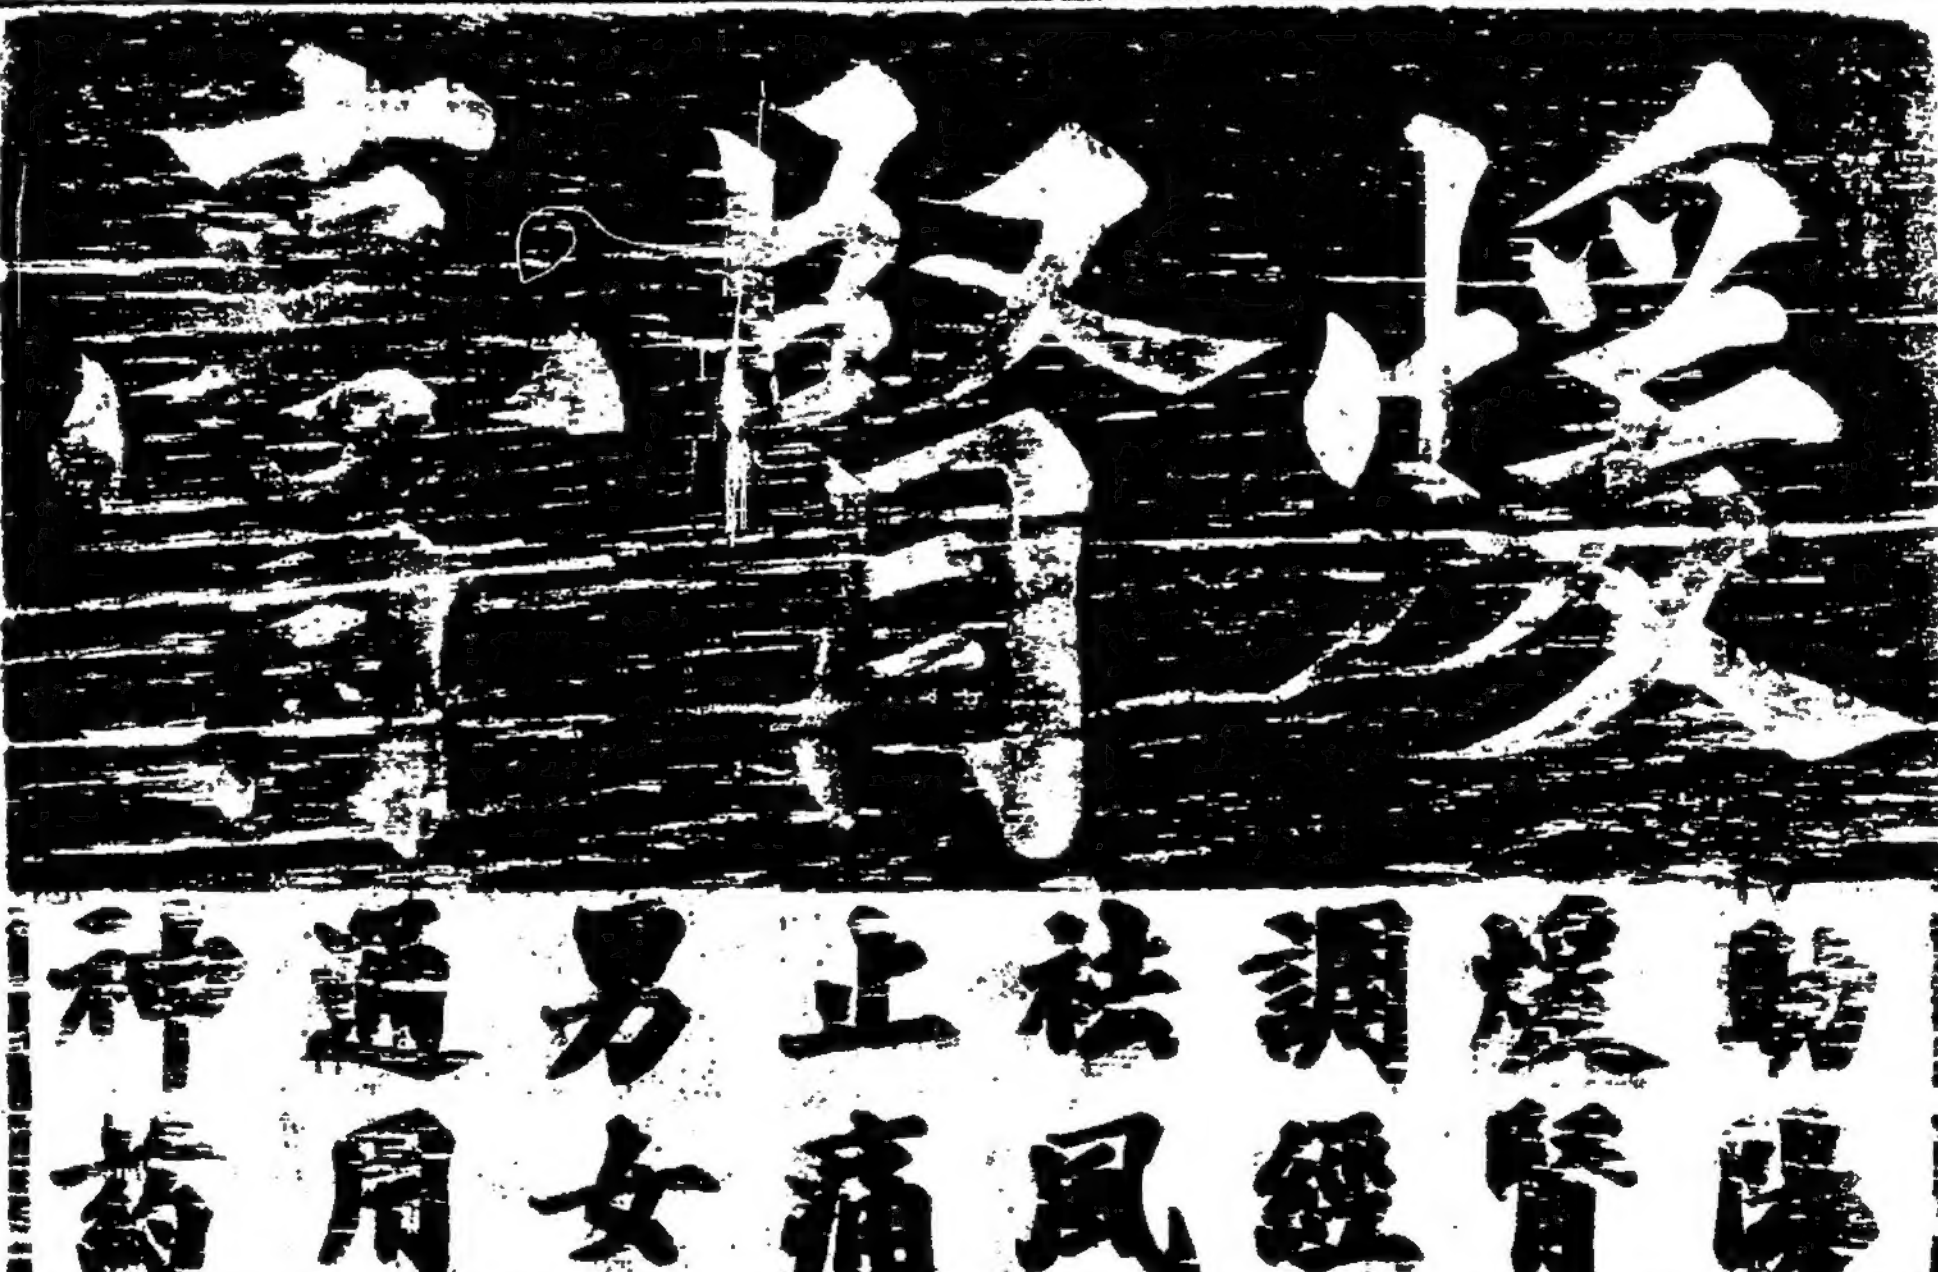 煖腎膏
助陽
煖腎
調經
祛風
止痛
男女
通用
神葯